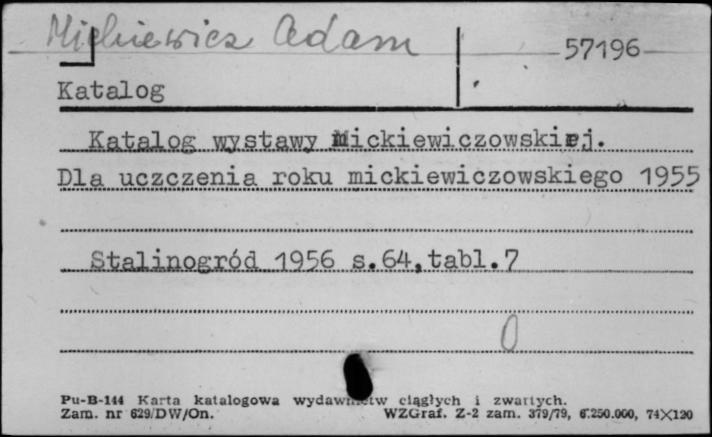 Mickiewicz Adam
57196
Katalog
Katalog wystawy Mickiewiczowskiej.
Dla uczczenia roku mickiewiczowskiego 1955
Stalinogród 1956 s.64,tabl.7
0
Pu-B-144 Karta katalogowa wydawnictw ciągłych i zwartych.
Zam. nr 629/DW/On. WZGraf. Z-2 zam. 379/79, 6.250.000, 74×120